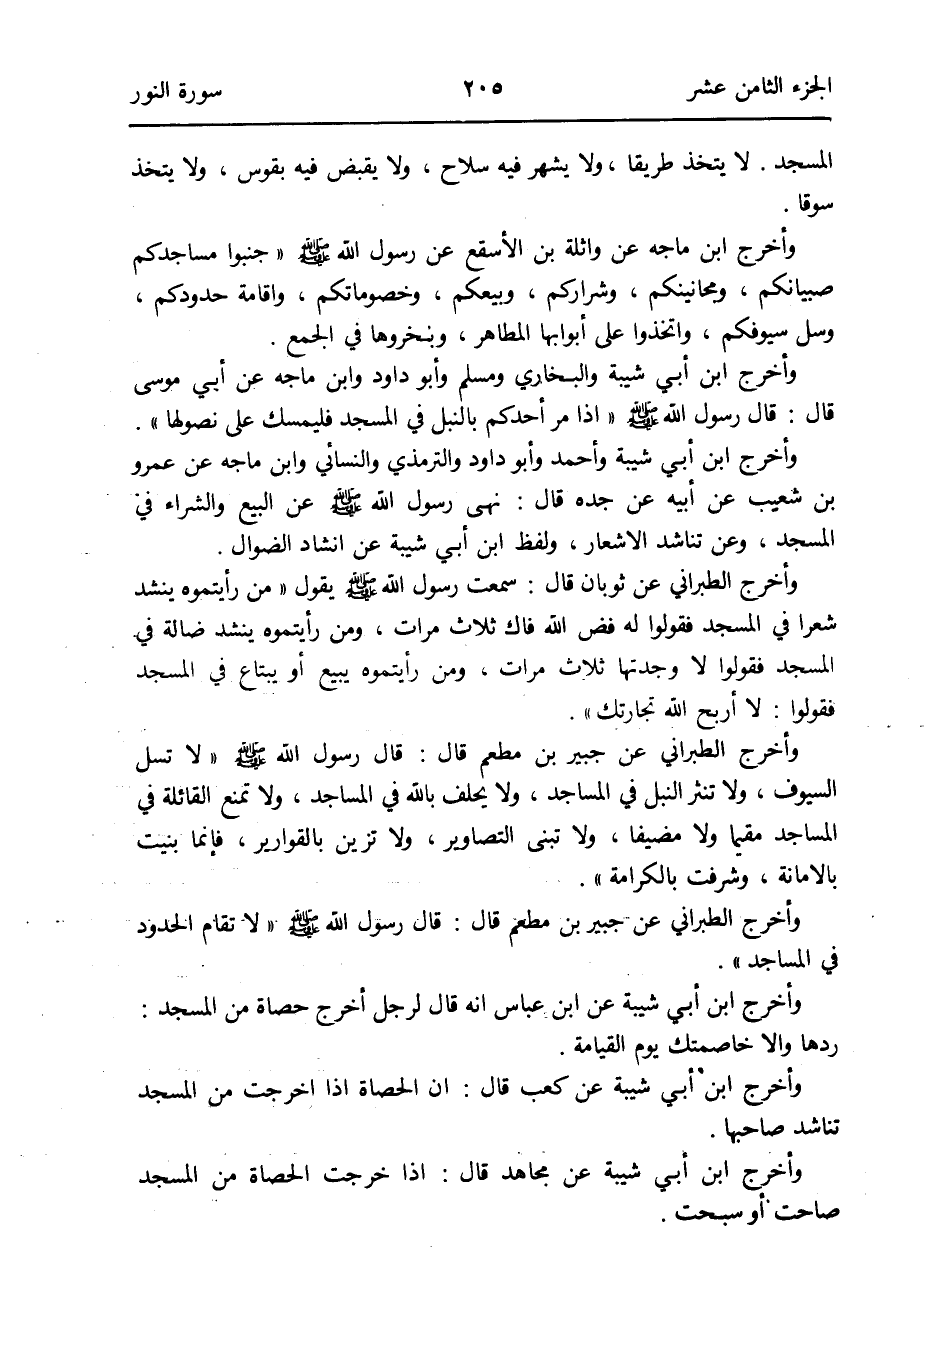 الجزء الثامن عشر ٢٠٥ سورة النور
المسجد . لا يتخذ طريقا ، ولا يشهر فيه سلاح ، ولا يقبض فيه بقوس ، ولا يتخذ
سوقا .
وأخرج ابن ماجه عن واثلة بن الأسقع عن رسول الله ﷺ « جنبوا مساجدكم
صبيانكم ، ومجانينكم ، وشراركم ، وبيعكم ، وخصوماتكم ، واقامة حدودكم ،
وسل سيوفكم ، واتخذوا على أبوابها المطاهر ، وبخروها في الجمع .
وأخرج ابن أبي شيبة والبخاري ومسلم وأبو داود وابن ماجه عن أبي موسى
قال : قال رسول الله ﷺ « اذا مر أحدكم بالنبل في المسجد فليمسك على نصولها » .
وأخرج ابن أبي شيبة وأحمد وأبو داود والترمذي والنسائي وابن ماجه عن عمرو
بن شعيب عن أبيه عن جده قال : نهى رسول الله ﷺ عن البيع والشراء في
المسجد ، وعن تناشد الاشعار ، ولفظ ابن أبي شيبة عن انشاد الضوال .
وأخرج الطبراني عن ثوبان قال : سمعت رسول الله ﷺ يقول « من رأيتموه ينشد
شعرا في المسجد فقولوا له فض الله فاك ثلاث مرات ، ومن رأيتموه ينشد ضالة في
المسجد فقولوا لا وجدتها ثلاث مرات ، ومن رأيتموه يبيع أو يبتاع في المسجد
فقولوا : لا أربح الله تجارتك» .
وأخرج الطبراني عن جبير بن مطعم قال : قال رسول الله ﷺ « لا تسل
السيوف ، ولا تنثر النبل في المساجد ، ولا يحلف بالله في المساجد ، ولا تمنع القائلة في
المساجد مقيما ولا مضيفا ، ولا تبنى التصاوير ، ولا تزين بالقوارير ، فإنما بنيت
بالامانة ، وشرفت بالكرامة » .
وأخرج الطبراني عن جبير بن مطعم قال : قال رسول الله ﷺ « لا تقام الحدود
في المساجد » .
وأخرج ابن أبي شيبة عن ابن عباس انه قال لرجل أخرج حصاة من المسجد :
ردها والا خاصمتك يوم القيامة .
وأخرج ابن أبي شيبة عن كعب قال : ان الحصاة اذا اخرجت من المسجد
تناشد صاحبها .
وأخرج ابن أبي شيبة عن مجاهد قال : اذا خرجت الحصاة من المسجد
صاحت أو سبحت .